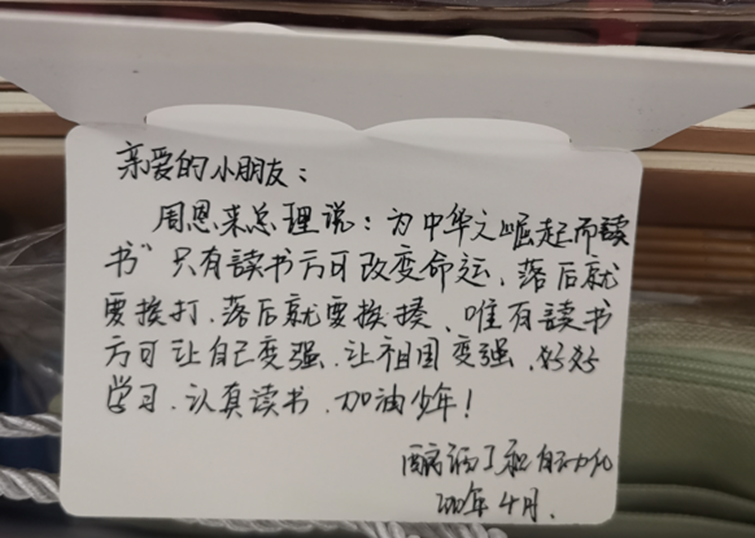 亲爱的小朋友：
周恩来总理说：为中华之崛起而读
书”只有读书方可改变命运、落后就
要挨打、落后就要挨揍、唯有读书
方可让自己变强、让祖国变强、好好
学习、认真读书、加油少年！
自动化
年4月.